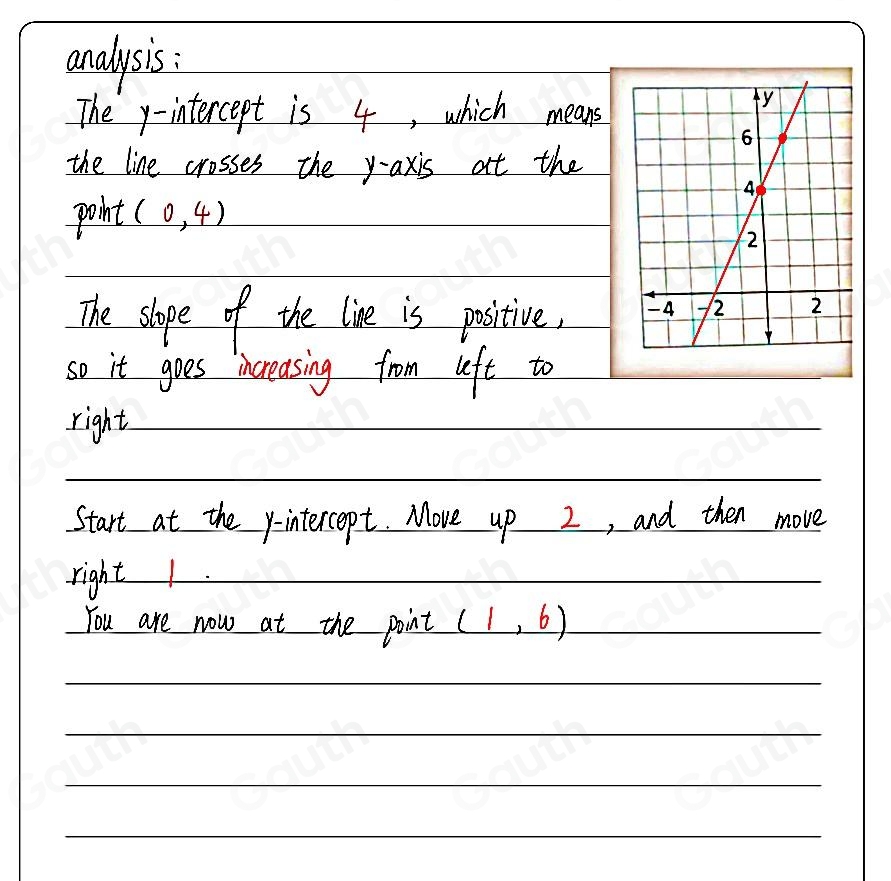 analysis:
The y-intercept is 4, which means
the line crosses the y-axis at the
point (0,4)
The slope of the line is positive,
so it goes increasing from left to
right
Start at the y-intercept. Move up 2, and then move
right 1.
You are now at the point (1,6)
y
6
4
2
-4 -2 2
Gauth